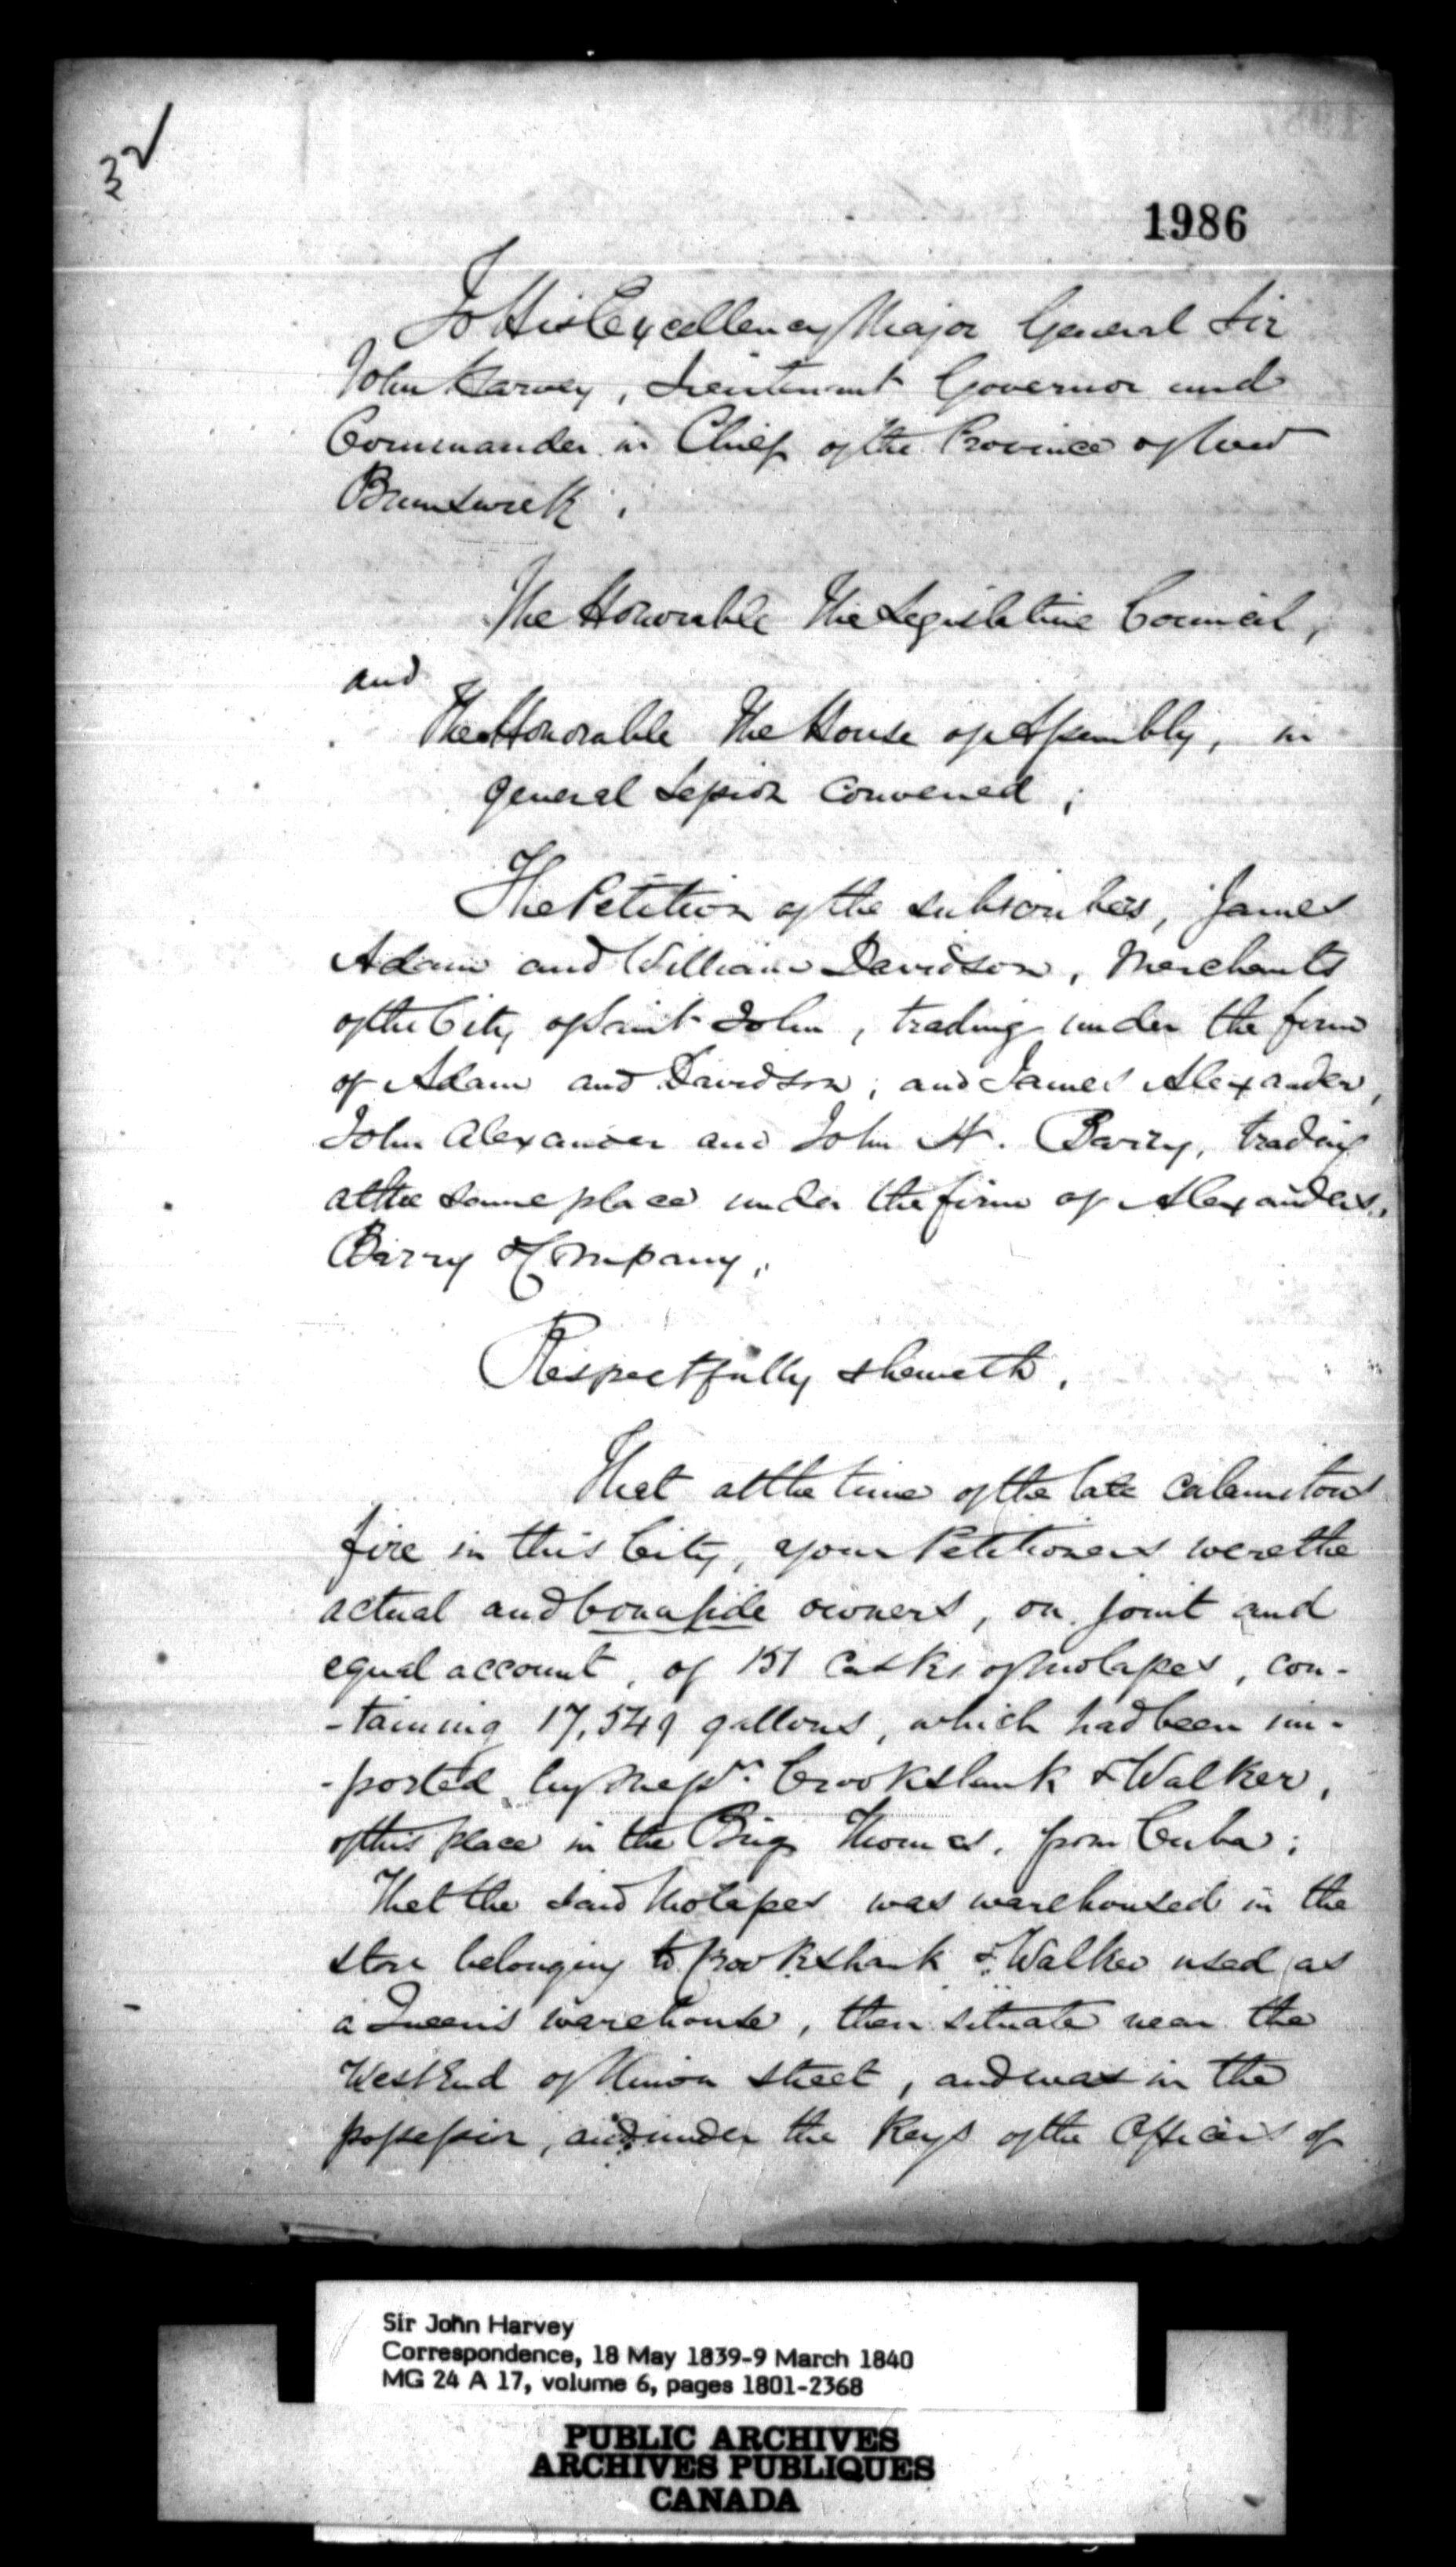 32
1986
To His Excellency Major General Sir
John Harvey, Lieutenant Governor and
Commander in Chief of the Province of New
Brunswick.
The Honorable The Legislative Council,
and
The Honorable The House of Assembly, in
general Session convened;
The Petition of the subscribers, James
Adam and William Davidson, Merchants
of the City of Saint John, trading under the firm
of Adam and Davidson; and James Alexander,
John Alexander and John H. Barry, trading
at the same place under the firm of Alexanders,
Barry & Company,
Respectfully sheweth.
That at the time of the late calamitous
fire in this City, your Petitioners were the
actual and bonafide owners, on joint and
equal account, of 151 casks of molasses, con-
-taining 17,549 gallons, which had been im-
-ported by Messrs. Crookshank & Walker,
of this place in the Brig Thomas, from Cuba;
That the said Molasses was warehoused in the
store belonging to Crookshank & Walker used as
a Queen's warehouse, then situate near the
West End of Union street, and was in the
possession, and under the Keys of the Officers of
Sir John Harvey
Correspondence, 18 May 1839-9 March 1840
MG 24 A 17, volume 6, pages 1801-2368
PUBLIC ARCHIVES
ARCHIVES PUBLIQUES
CANADA